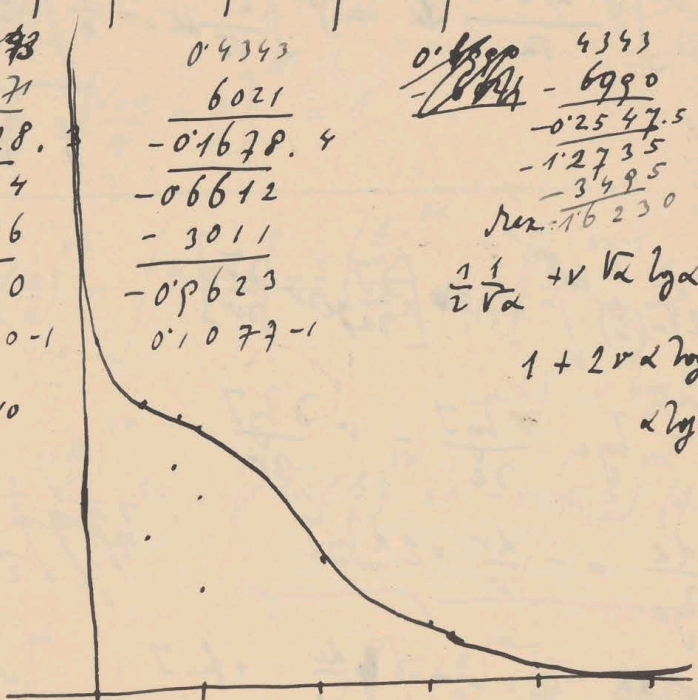 71
28.
4
6
0
0-1
0·4343
6021
-0·1678. 4
-0·6612
- 3011
-0·9623
0·1077-1
4343
- 6990
-0·2547.5
-1·2735
-3495
-16230
1/2 1/√α + ν √α log α
1 + 2 ν α log
α log